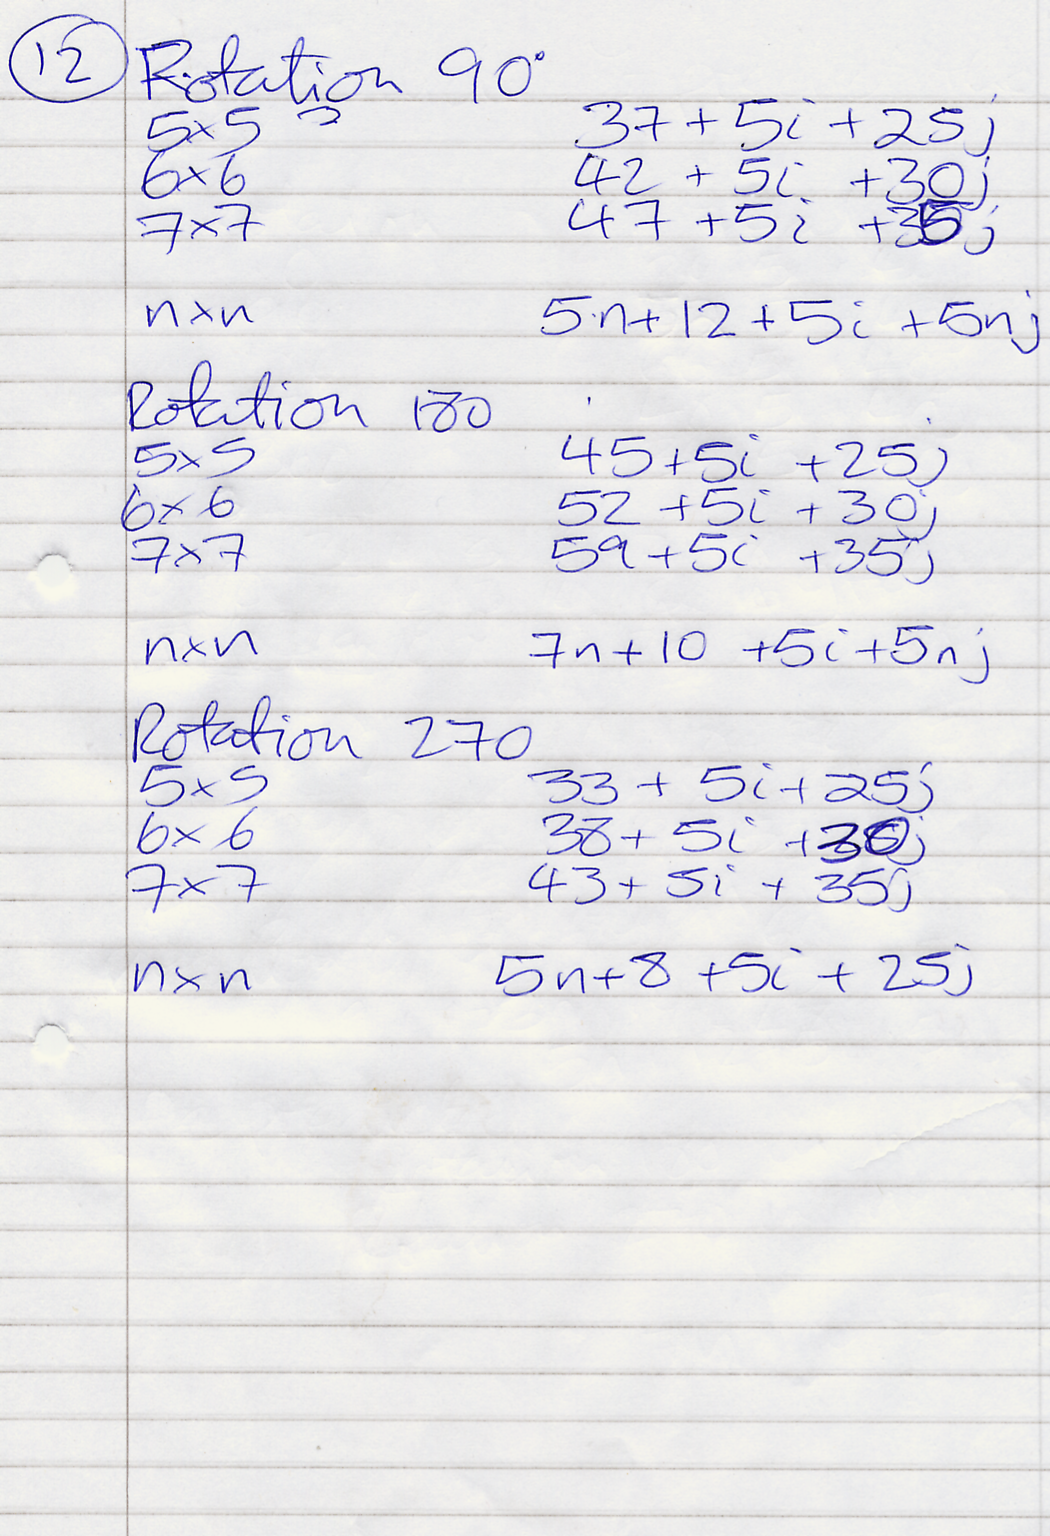 12 Rotation 90°
5×5 37 + 5i + 25j
6×6 42 + 5i + 30j
7×7 47 + 5i + 35j
n×n 5n + 12 + 5i + 5nj
Rotation 180
5×5 45 + 5i + 25j
6×6 52 + 5i + 30j
7×7 59 + 5i + 35j
n×n 7n + 10 + 5i + 5nj
Rotation 270
5×5 33 + 5i + 25j
6×6 38 + 5i + 30j
7×7 43 + 5i + 35j
n×n 5n + 8 + 5i + 25j